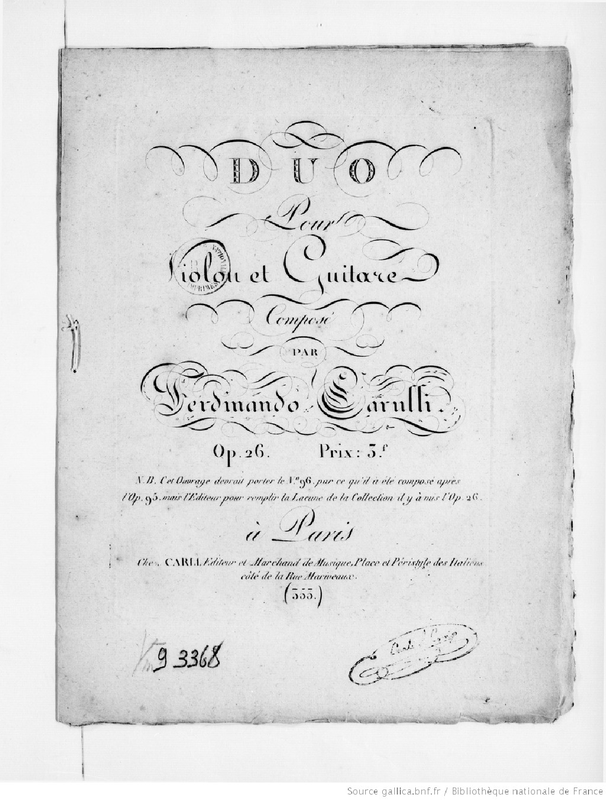 DUO
Pour
Violon et Guitare
Composé
PAR
Ferdinando Carulli.
Op. 26. Prix: 3.f
N.B. Cet Ouvrage devrait porter le N.º 96. par ce qu'il à été composé après
l'Op. 95. mais l'Editeur pour remplir la Lacune de la Collection il y à mis l'Op. 26.
à Paris
Chez CARLI, Editeur et Marchand de Musique, Place et Péristyle des Italiens
côté de la Rue Mariveaux.
(353.)
Vm 9 3368
Source gallica.bnf.fr / Bibliothèque nationale de France